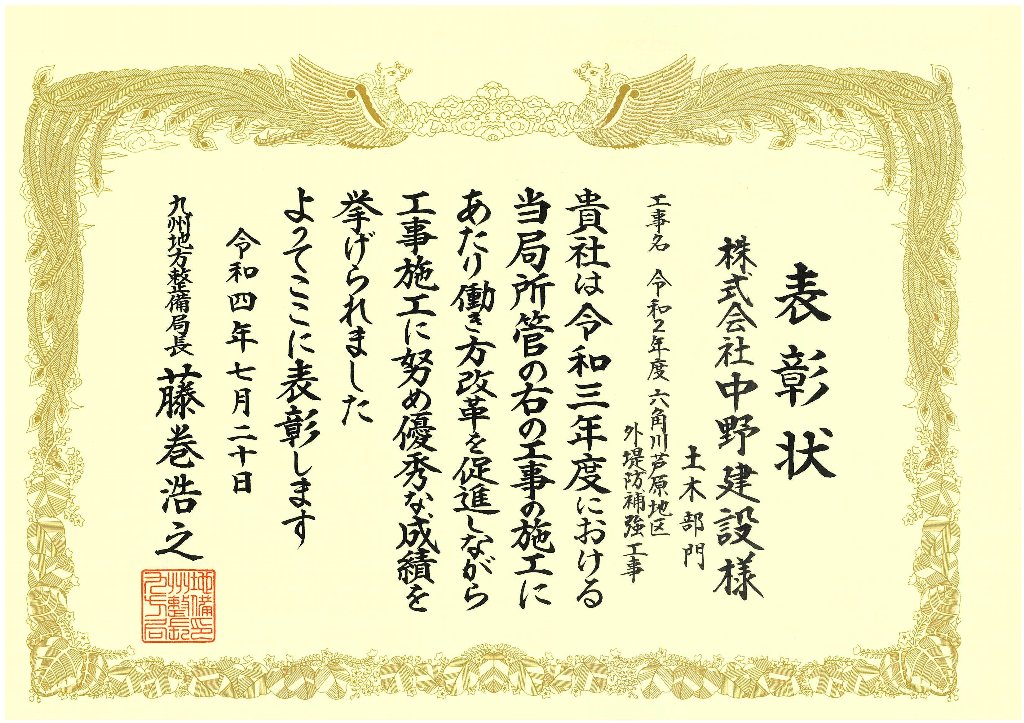 表彰状
株式会社中野建設様
土木部門
工事名 令和2年度 六角川芦原地区
外堤防補強工事
貴社は令和三年度における
当局所管の右の工事の施工に
あたり働き方改革を促進しながら
工事施工に努め優秀な成績を
挙げられました
よってここに表彰します
令和四年七月二十日
九州地方整備局長 藤巻浩之